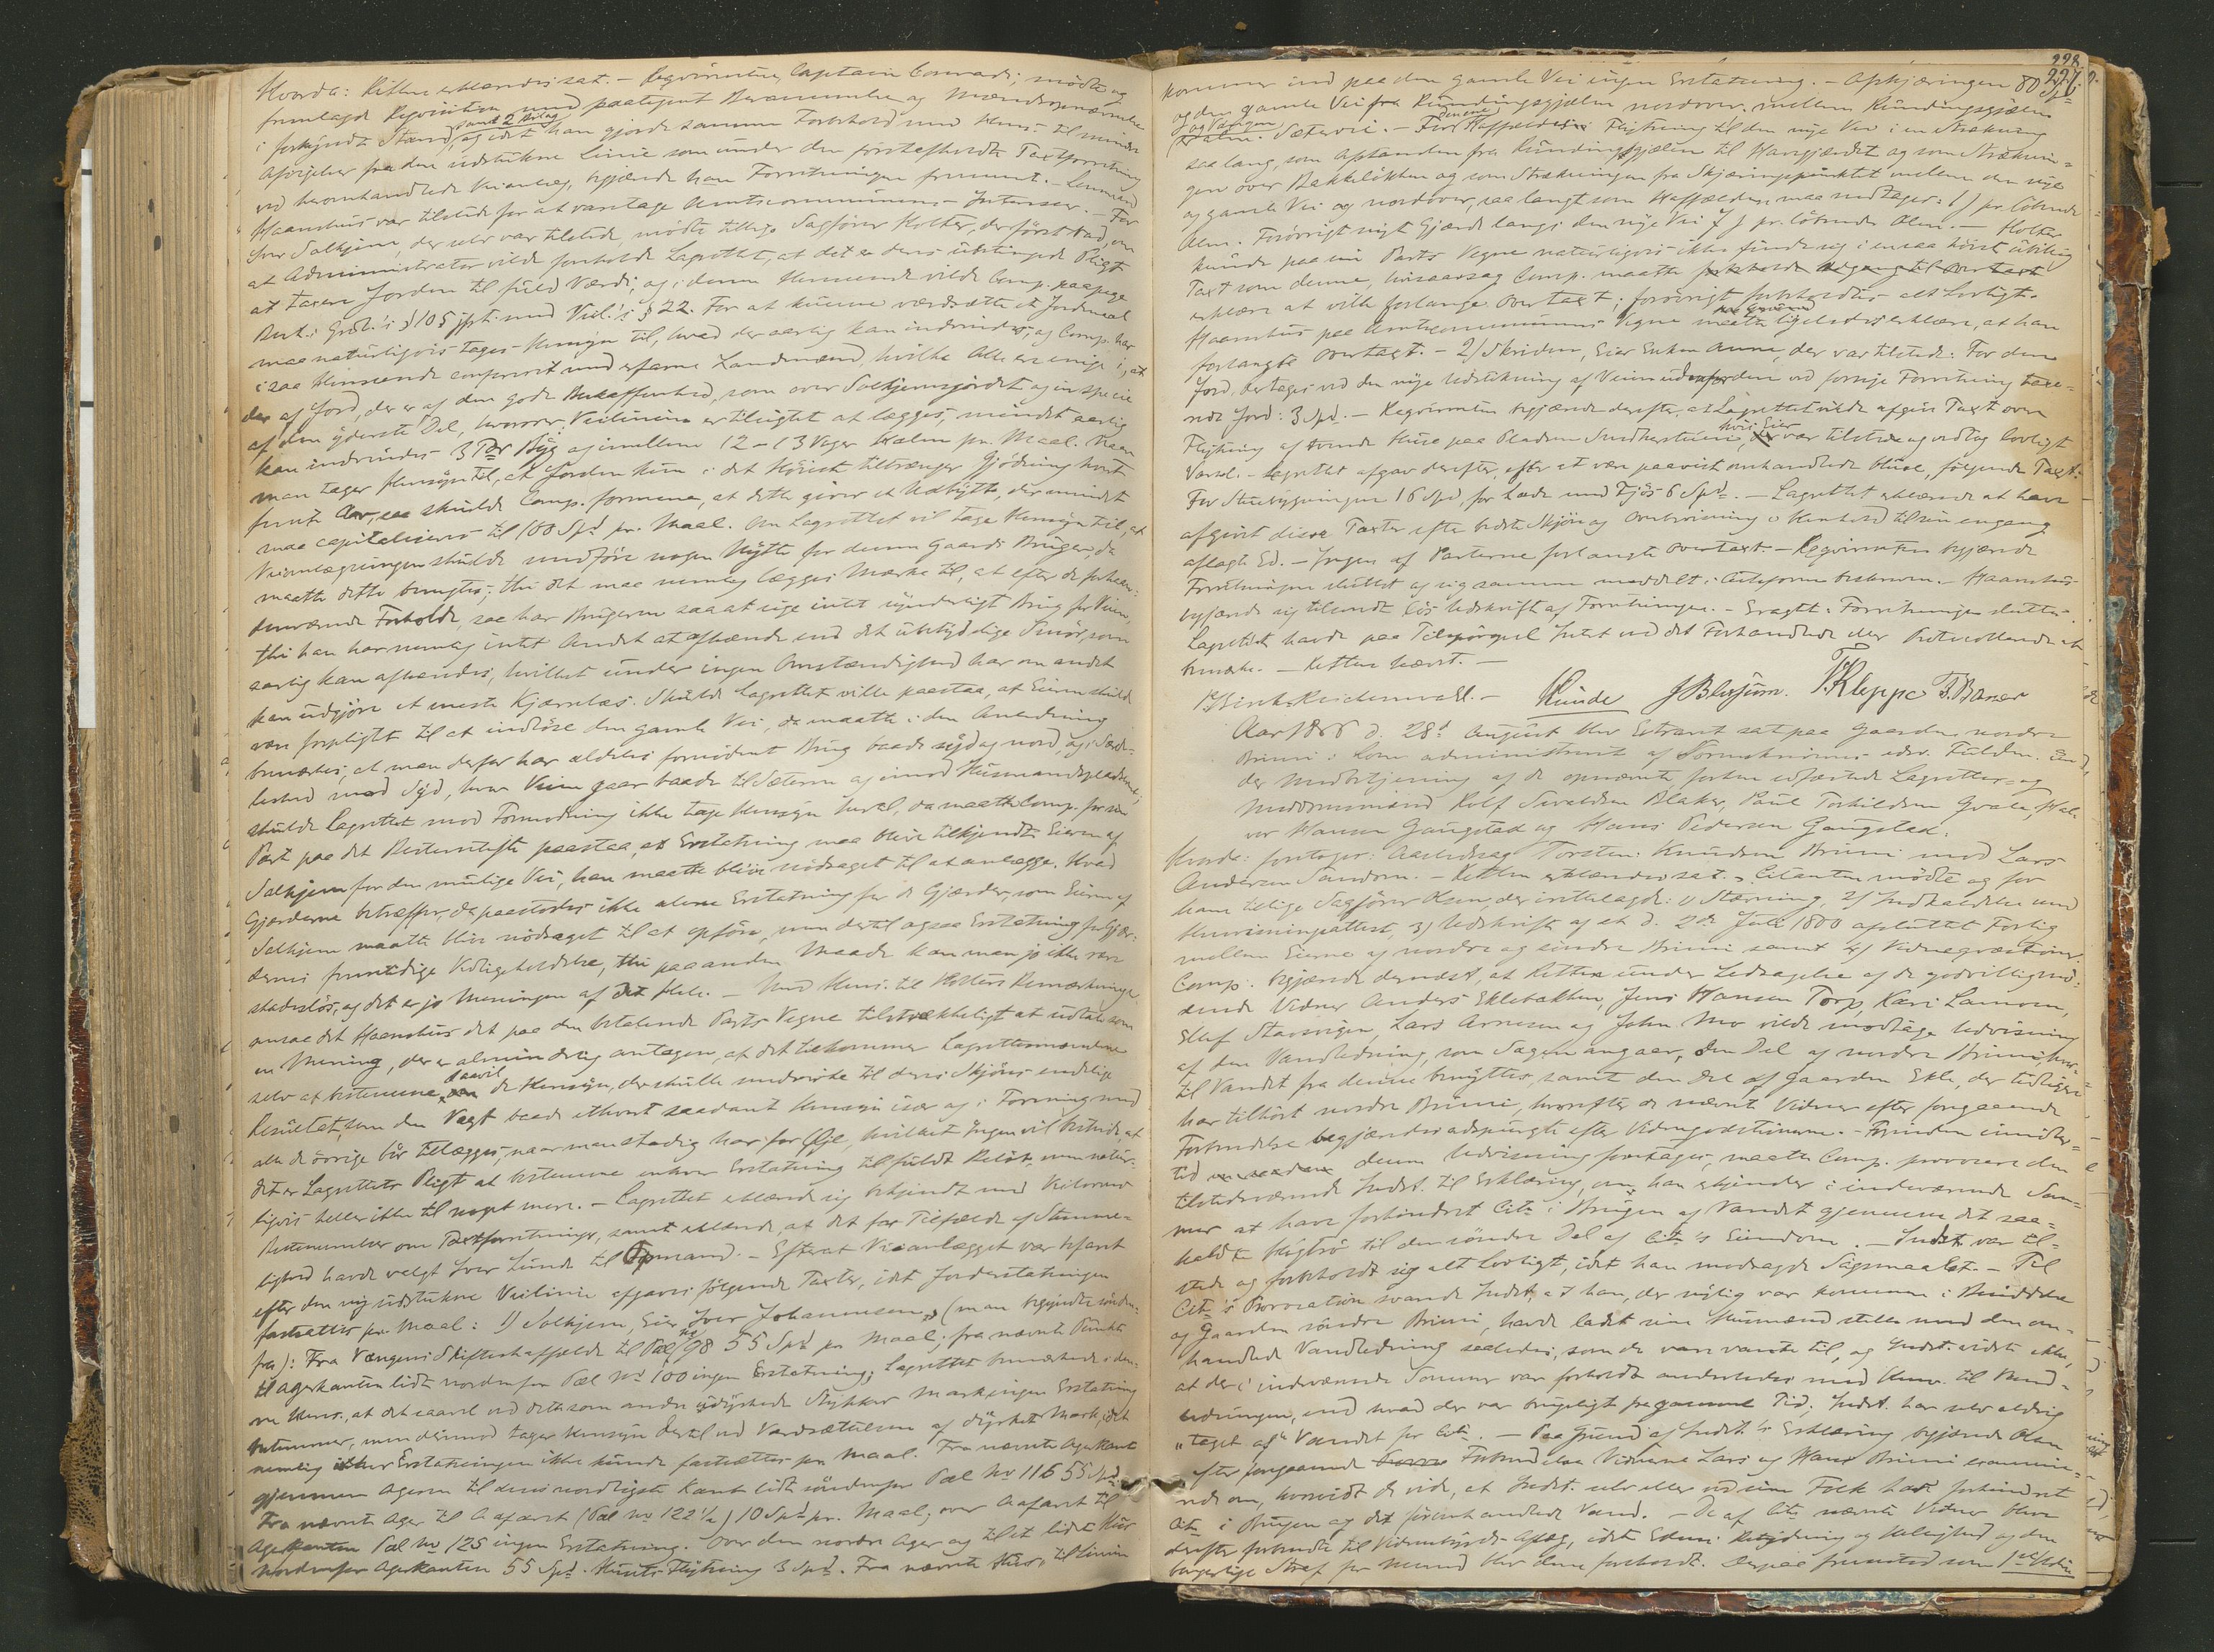 Hvorda: Retten erklæredes sat. – Reqvirenten, Captain Conradi, mødte og
fremlagde Reqvisition med paategnet Berammelse og Mændsopnævnelse
samt 2 Bilag
i forkyndt Stand, og idet han gjorde samme Forbehold med Hens. til mindre
Afvigelser fra den udstukne Linie som under den første afholdte Taxtforretning
ved heromhandlede Veianlæg, begjærede han Forretningen fremmet. – Lensmand
Haanshus var tilstede for at varetage Amtscommunens Interesser. – For
Iver Solhjem, der selv var tilstede, mødte tillige Sagfører Holter, der først bad om
at Administrator vilde foreholde Lagrettet, at det er dens ubetingede Pligt
at taxere Jorden til fuld Værdi, og i denne Henseende vilde Comp. paapege
Best. i Grdl.'s § 105 jfrt. med Veil.'s § 22. For at kunne værdsætte et Jordmaal
maa naturligvis tages Hensyn til, hvad der aarlig kan indvindes, og Comp. har
i saa Henseende confereret med erfarne Landmænd, hvilke Alle ere enige i, at
der af Jord, der er af den gode Beskaffenhed, som over Solhjemsjordet og in specie
af den yderste Del, hvorover Veilinien er tilsigtet at lægges, mindst aarlig
kan indvindes 3 Tdr Byg og imellem 12–13 Voger Halm pr. Maal. Naar
man tager Hensyn til, at Jorden kun i det Høieste tiltrænger Gjødning hvert
femte Aar, saa skulde Comp. formene, at dette giver et Udbytte, der mindst
maa capitaliseres til 100 Spd pr. Maal. Om Lagrettet vil tage Hensyn til, at
Veiomlægningen skulde medføre nogen Nytte for denne Gaards Bruger, da
maatte dette benegtes; thi det maa nemlig lægges Mærke til, at efter de forhaan-
denværende Forholde, saa har Brugeren saa at sige intet synderligt Brug for Veien,
thi han har nemlig intet Andet at afhænde end det ubetydelige Smør, som
aarlig kan afhændes, hvilket under ingen Omstændighed har om andet
kan udgjøre et eneste Kjørelæs. Skulde Lagrettet ville paastaa, at Eieren skulde
være forpligtet til at indløse den gamle Vei, da maatte i den Anledning
bemærkes, at man derfor har aldeles fornødent Brug baade syd og nord, og i Særde-
leshed mod Syd, hvor Veien gaar baade til Sæteren og imod Husmandspladsene;
skulde Lagrettet mod Formodning ikke tage Hensyn hertil, da maatte Comp. for sin
Part paa det Bestemteste paastaa, at Erstatning maa blive tilkjendt Eieren af
Solhjem for den mulige Vei, han maatte blive nødsaget til at anlægge. Hvad
Gjærderne betræffer, da paastodes ikke alene Erstatning for de Gjærder, som Eieren af
Solhjem maatte blive nødsaget til at opføre, men dertil ogsaa Erstatning for Gjær-
dernes fremtidige Vedligeholdelse, thi paa anden Maade kan man jo ikke være
skadesløs, og det er jo Meningen af det Hele. – Med Hens. til Holters Bemærkninger
ansaa det Haanshus det paa den betalende Parts Vegne tilstrækkeligt at udtale som
en Mening, der er almindelig antagen, at det tilkommer Lagrettesmændene
saavel
selv at bestemme de Hensyn, der skulle medvirke til deres Skjøns endelige
Resultat, som den Vægt baade ethvert saadant Hensyn især og i Forening med
alle de øvrige bør tillægges, naar man stadig har for Øje, hvilket Ingen vil bestride, at
det er Lagrettets Pligt at bestemme enhver Erstatning til fuldt Beløb, men natur-
ligvis heller ikke til noget mere. – Lagrettet erklærede sig bekjendt med Veilovens
Bestemmelser om Taxtforretninger, samt erklærede, at det for Tilfælde af Stemme-
lighed havde valgt Iver Lunde til Opmand. – Efterat Veianlægget var befaret
efter den ny udstukne Veilinie afgaves følgende Taxter, idet Jorderstatningen
fastsættes pr. Maal: 1) Solhjem, Eier Iver Johannesen, (man begyndte sønden-
fra): Fra Vangens Skifteshaffælde til Pæl No 98 55 Spd pr. Maal; fra nævnte Punkt
til Agerkanten lidt nordenfor Pæl No 100 ingen Erstatning; Lagrettet bemærkede i den-
ne Hens., at det saavel ved dette som andre udyrkede Stykker Mark ingen Erstatning
bestemmer, men derimod tager Hensyn dertil ved Værdsættelsen af dyrket Mark, idet
nemlig Erstatningen ikke kunde fastsættes pr. Maal. Fra nævnte Agerkant
gjennem Ageren til dens nordligste Kant lidt søndenfor Pæl No 116 55 Spd.
Fra nævnte Ager til Aafaret (Pæl No 122½) 10 Spd pr. Maal; over Aafaret til
Agerkanten Pæl No 125 ingen Erstatning. Over den nordre Ager og til et lidet Hus
nordenfor Agerkanten 55 Spd. Husets Flytning 3 Spd. Fra nævnte Hus til Linien
228
227
kommer ind paa den gamle Vei ingen Erstatning. – Afskjæringen 80 Spd
og den gamle Vei fra Rundingsgjælen nordover mellem Rundingsgjælen
Sætervei. – For Haffældenes Flytning til den nye Vei i en Strækning
saa lang, som Afstanden fra Rundingsgjælen til Havegjærdet og som Stræknin-
gen over Bakkeløkken og som Strækningen fra Skjæringspunktet mellem den nye
og gamle Vei og nordover, saa langt som Haffælden maa medtages: 6 β pr. løbende
Alen. Forøvrigt nyt Gjærde langs den nye Vei 7 β pr. løbende Alen. – Holter
kunde paa sin Parts Vegne naturligvis ikke finde sig i en saa høist ubillig
Taxt som denne, hvisaarsag Comp. maatte forbeholde Adgang til Overtaxt
erklære at ville forlange Overtaxt; forøvrigt forbeholdtes alt Lovligt.
Haanshus paa Amtscommunens Vegne maatte ligeledes erklære, at han
forlangte Overtaxt. – 2) Skriden, Eier Enken Anne, der var tilstede. For den
Jord, der tages ved den nye Udstikning af Veien udenfor den ved forrige Forretning taxe-
rede Jord: 3 Spd. – Reqvirenten begjærede derefter, at Lagrettet vilde afgive Taxt over
hvis Eier
Flytning af tvende Huse paa Pladsen Smedhestuen, var tilstede og vedtog lovligt
Varsel. – Lagrettet afgav derefter, efter at være paavist omhandlede Huse, følgende Taxt:
For Stuebygningen 16 Spd, for Lade med Fjøs 6 Spd. – Lagrettet erklærede at have
afgivet disse Taxter efter bedste Skjøn og Overbevisning i Henhold til sin engang
aflagte Ed. – Ingen af Parterne forlangte Overtaxt. – Reqvirenten begjærede
Forretningen sluttet og sig samme meddelt i Acteform beskreven. – Haanshus
begjærede sig tilsendt løs Udskrift af Forretningen. – Eragtet: Forretningen sluttes.
Lagrettet havde paa Tilspørgsel Intet ved det Forhandlede eller Protocollerede at
bemærke. – Retten hævet. –
Lunde J Blessum. T Kleppe T. Baner
Aar 1866 d. 28d August blev Extraret sat paa Gaarden nordre
Brimi i Lom administreret af Sorenskriverens edsv. Fuldm. Lund,
der Medbetjening af de opnævnte forhen edfæstede Lagrettes- og
Meddomsmænd Rolf Sevaldsen Blaker, Paul Torkildsen Graler, Hal-
vor Hansen Gaugstad og Hans Pedersen Gaugstad.
Hvorda: foretoges: Aastedssag Torsten Knudsen Brimi mod Lars
Andersen Sandom. – Retten erklæredes sat. – Citanten mødte og for
ham tillige Sagfører Olsen, der irettelagde: 1) Stævning, 2) Indkaldelse med
Henvisningsattest, 3) Udskrift af et d. 2de Juli 1800 afsluttet Forlig
mellem Eierne af nordre og søndre Brimi samt 4) Vidneqvæstioner.
Comp. begjærede dernæst, at Retten under Ledsagelse af de godvilligmø-
dende Vidner Anders Eklebakken, Jens Hansen Torp, Kari Lamoen,
Ellef Stavsvigen, Lars Arnesen og John Mo vilde modtage Udvisning
af den Vandledning, som Sagen angaar, den Del af nordre Brimi, hvor-
til Vandet fra denne benyttes, samt den Del af Gaarden Ekle, der tidligere
har tilhørt nordre Brimi, hvorefter de nævnte Vidner efter foregaaende
Forbindelse begjæredes adspurgte efter Vidneqvæstionerne. – Forinden imidler-
tid denne Udvisning foretages, maatte Comp. provocere den
tilstedeværende Indst. til Erklæring, om han erkjender i indeværende Som-
mer at have forhindret Citn i Brugen af Vandet gjennem det saa-
kaldte Rigbrø til den søndre Del af Citn's Eiendom. – Indst. var til-
stede og forbeholdt sig alt Lovligt, idet han modsagde Sagsmaalet. – Til
Citn's Provocation svarede Indst., at han, der nylig var kommen i Besiddelse
af Gaarden søndre Brimi, havde ladet sine Husmænd stelle med den om-
handlede Vandledning saaledes, som de vare vante til, og Indst. vidste ikke,
at der i indeværende Sommer var forholdt anderledes med Hens. til Vand-
ledningen, end hvad der var brugeligt fra gammel Tid; Indst. har selv aldrig
"taget af" Vandet for Citn. – Paa Grund af Indst.'s Erklæring begjærede Olsen
efter foregaaende Forbindelse Vidnerne Lars og Hans Brimi examine-
rede om, hvorvidt de vide, at Indst. selv eller ved sine Folk har forhindret
Citn i Brugen af det foromhandlede Vand. – De af Citn nævnte Vidner bleve
derefter forbundne til Vidnesbyrds Aflæg, idet Edens Betydning og Hellighed og den
borgerlige Straf for Meened blev dem foreholdt. Derpaa fremstod som 1ste Vidne